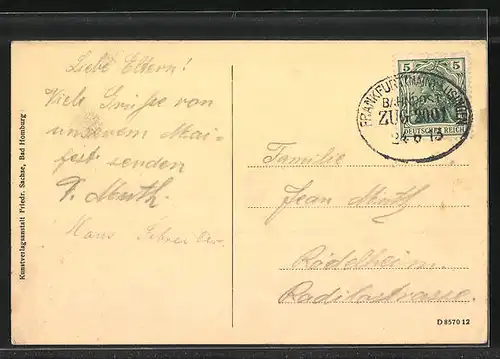 Liebe Eltern!
Viele Grüsse von
unserem Mai-
fest senden
F. Muth.
Hans
Kunstverlagsanstalt Friedr. Sachse, Bad Homburg
5 5
DEUTSCHES REICH
FRANKFURT (MAIN)-USINGEN
BAHNPOST
ZUG 2001
24 6 13
Familie
Jean Muth
Rödelheim.
Radilostrasse.
D 8570 12